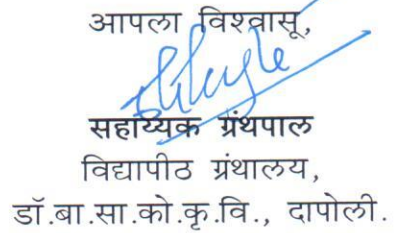 आपला विश्वासू,
सहाय्यिक ग्रंथपाल
विद्यापीठ ग्रंथालय,
डॉ.बा.सा.को.कृ.वि., दापोली.